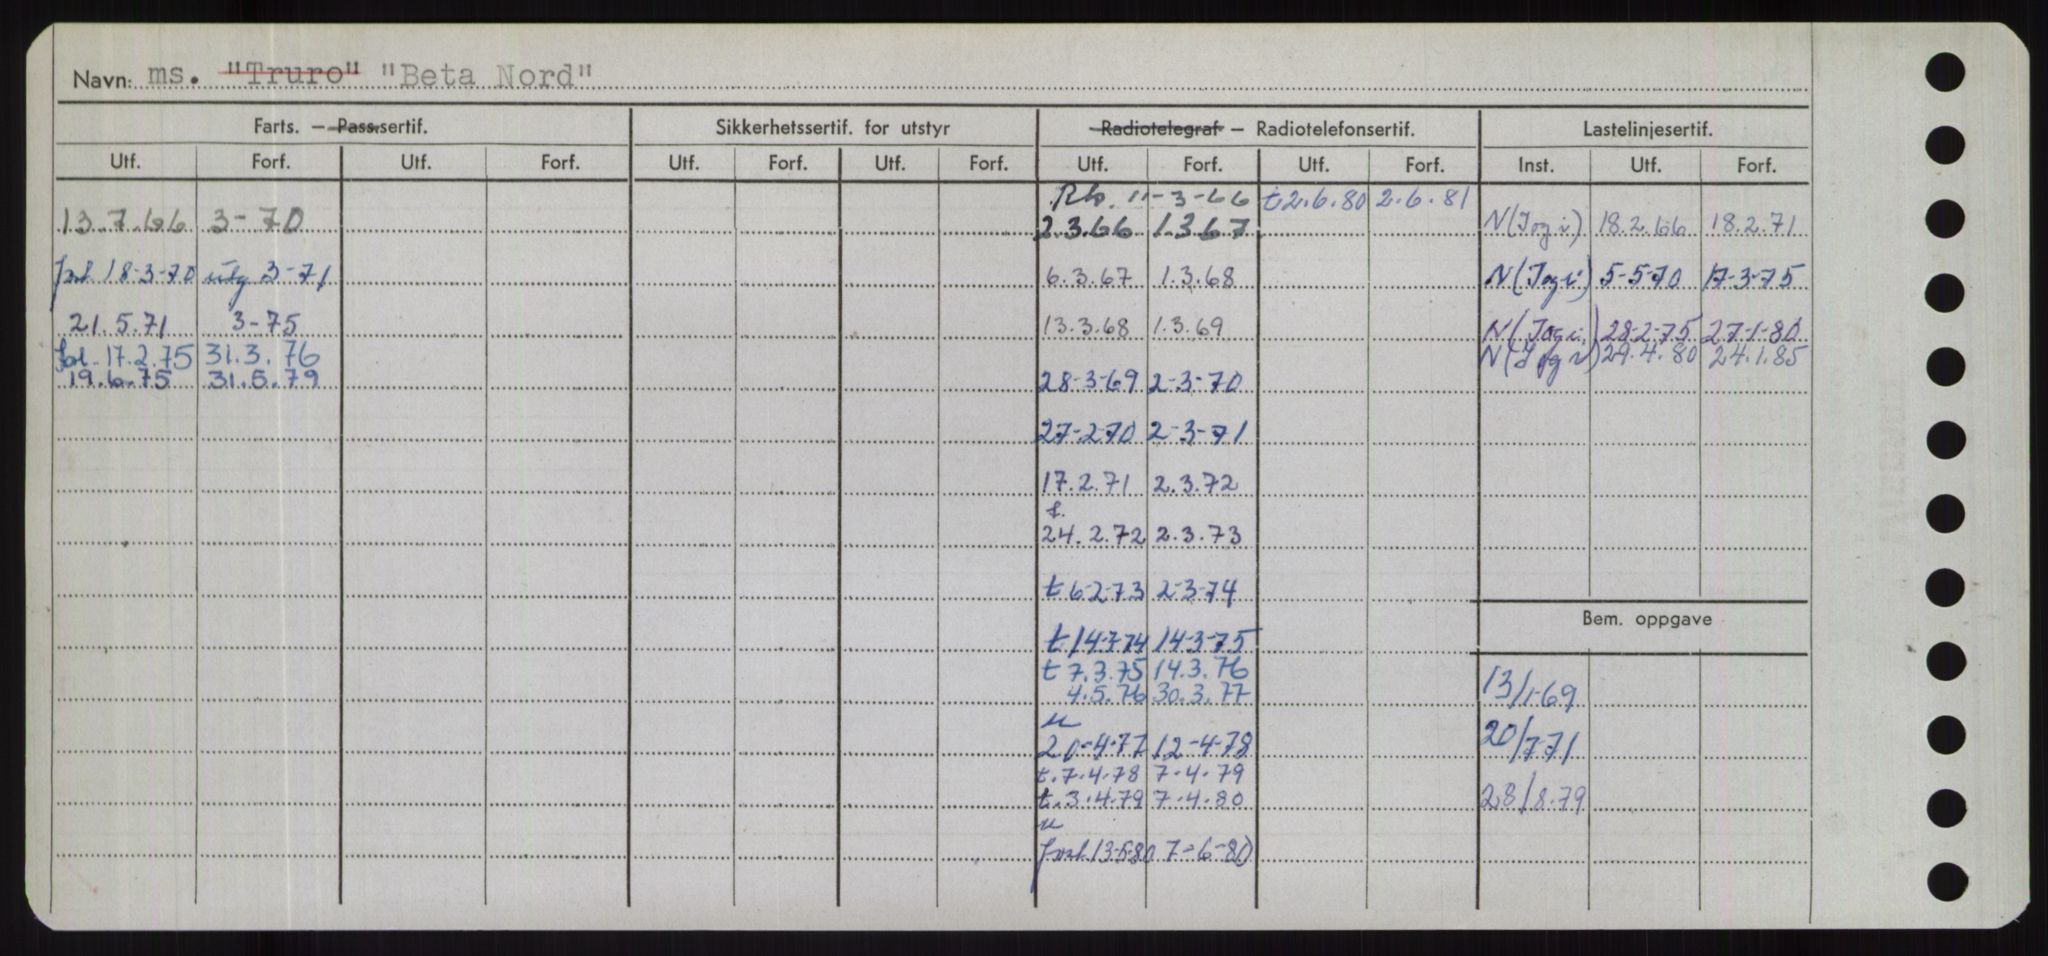 Navn: ms. "Truro" "Beta Nord"
Farts. — Pass.sertif. Sikkerhetssertif. for utstyr Radiotelegraf — Radiotelefonsertif. Lastelinjesertif.
Utf. Forf. Utf. Forf. Utf. Forf. Utf. Forf. Utf. Forf. Utf. Forf. Inst. Utf. Forf.
11-3-66 t 2.6.80 2.6.81
13.7.66 3-70 2.3.66 1.3.67 N(Jog v) 18.2.66 18.2.71
forl 18-3-70 utg 3-71 6.3.67 1.3.68 N(Jog v) 5-5-70 17-3-75
21.5.71 3-75 13.3.68 1.3.69 N(Jog v) 28-2-75 27-1-80
forl. 17.2.75 31.3.76 N(Jog v) 29.4.80 24.1.85
19.6.75 31.5.79 28-3-69 2-3-70
27-2-70 2-3-71
17.2.71 2.3.72
t.
24.2.72 2.3.73
t 6-2-73 2-3-74
Bem. oppgave
t 14-3-74 14-3-75
t 7.3.75 14.3.76
4.5.76 30.3.77 13/1-69
u
21-4-77 12-4-78 20/7-71
t. 7.4.78 7.4.79
t. 3.4.79 7.4.80 28/8.79
u
forl. 13-5-80 7-6-80